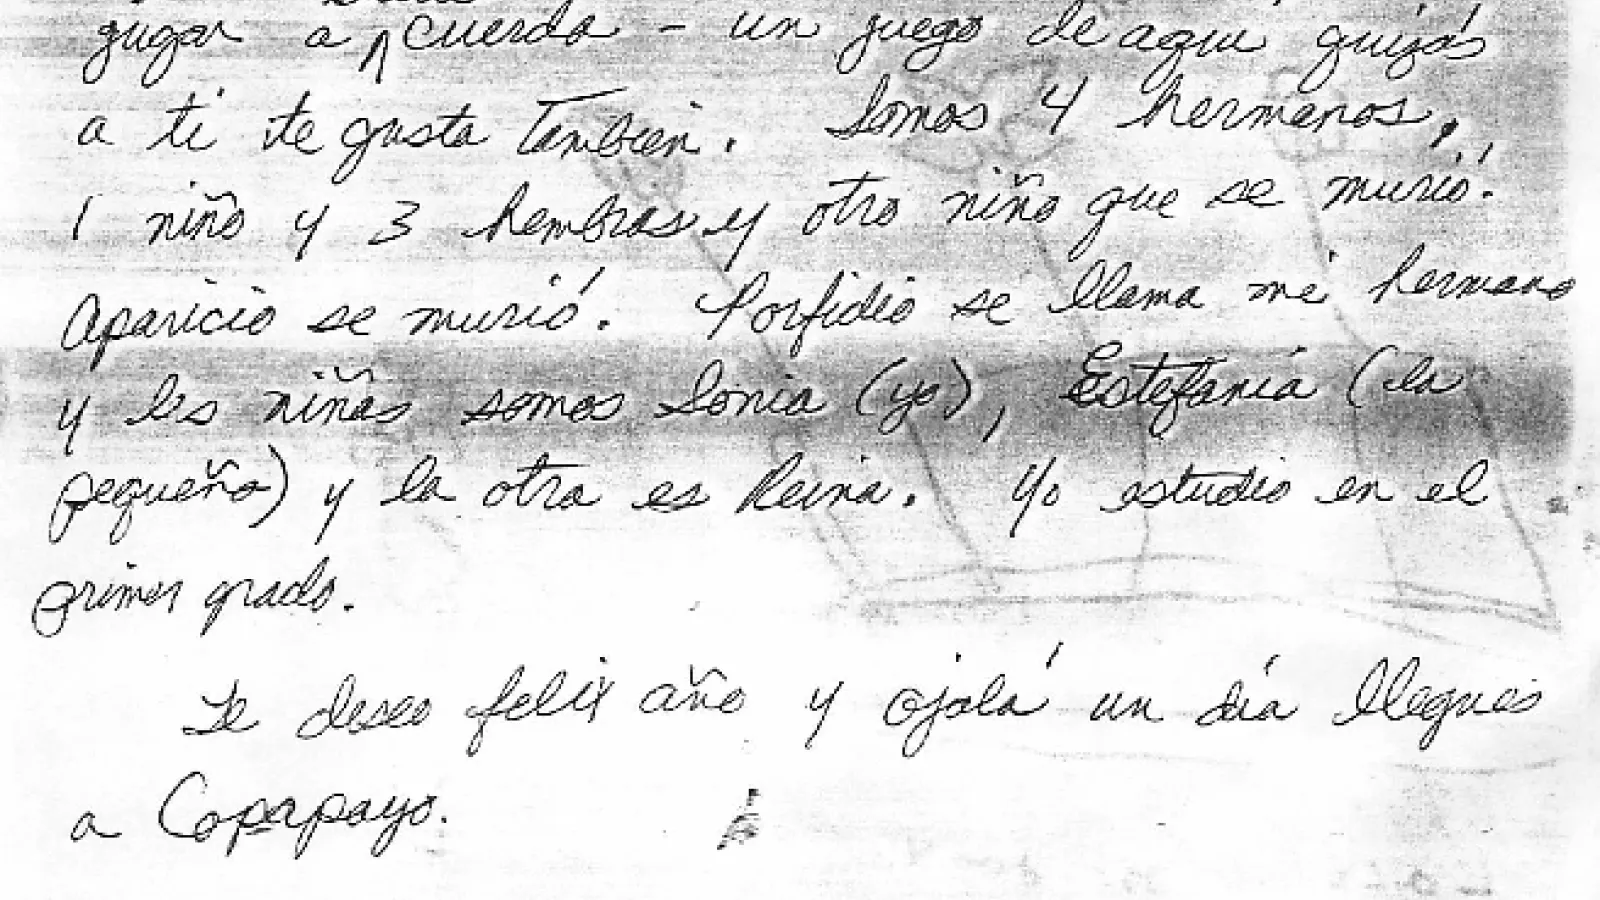 jugar a cuerda - un juego de aquí quizás
a ti te gusta Tambien. Somos 4 hermanos,
1 niño y 3 hembras y otro niño que se murió.
Aparicio se murió. Porfidio se llama mi hermano
y las niñas somos Sonia (yo), Estefanía (la
pequeña) y la otra es Reina. Yo estudio en el
primer grado.
Te deseo felix año y ojalá un día llegues
a Copapayo.